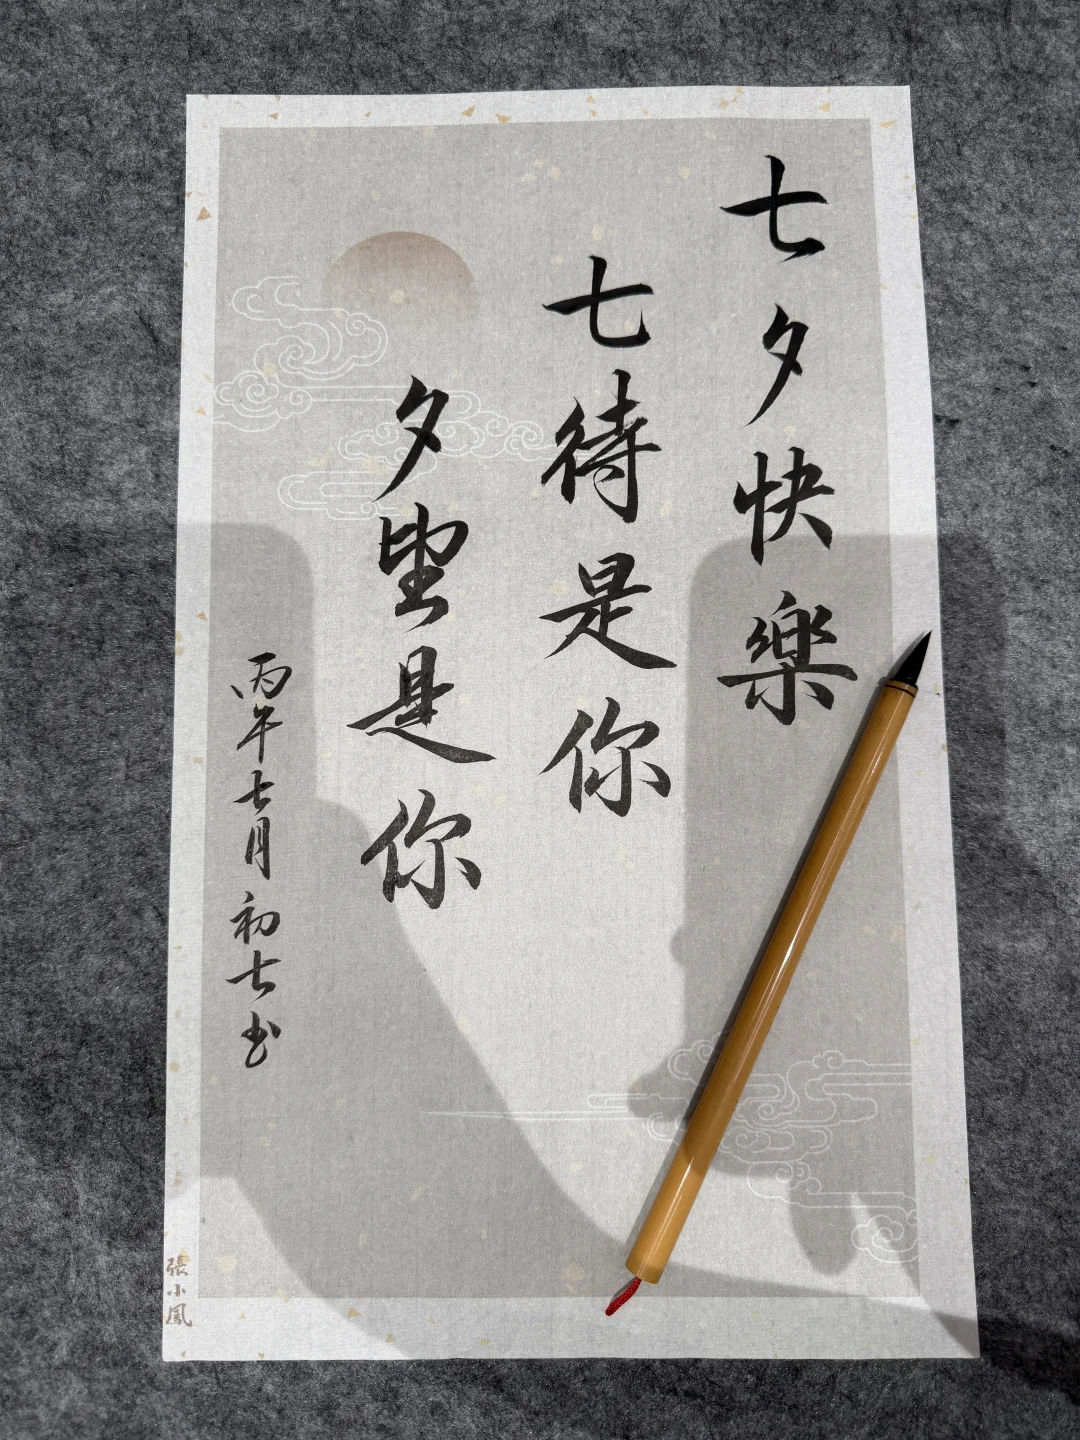 七夕快樂
七待是你
夕望是你
丙午七月初七书
張小鳳